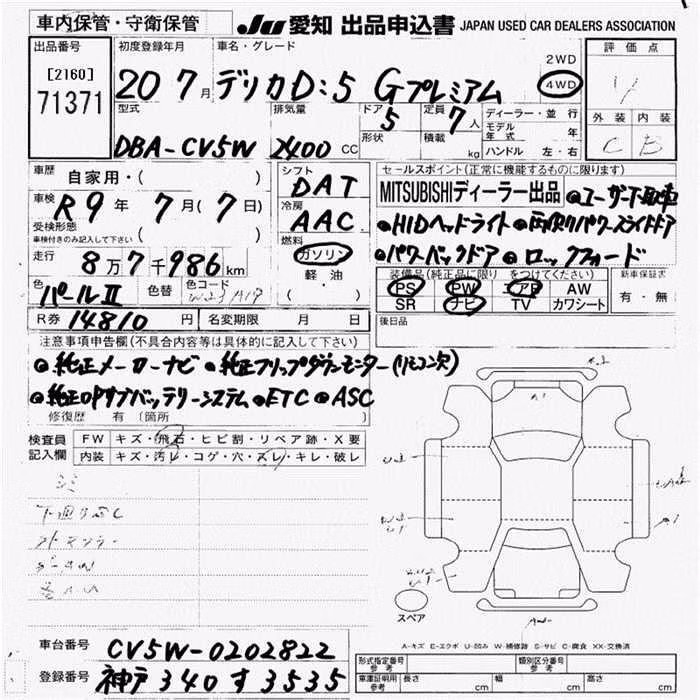 車内保管・守衛保管
JU 愛知 出品申込書 JAPAN USED CAR DEALERS ASSOCIATION
出品番号 初度登録年月 車名・グレード 評価点
[2160] 2WD
71371 20 7月 デリカD:5 Gプレミアム 4WD
型式 排気量 ドア 5 定員 7人 ディーラー・並行 外装 内装
形状 積載 kg モデル年式 年 C B
DBA-CV5W 2400 CC ハンドル 左・右
車歴 自家用・( ) シフト DAT セールスポイント(正常に機能するものに限ります)
MITSUBISHIディーラー出品 ●ユーザー下取車
車検 R9年 7月(7日) 冷房 AAC
●HIDヘッドライト ●両側パワースライドドア
受検形態 ( )
車検付きのみ記入して下さい
燃料 ガソリン ●パワーバックドア ●ロックフォード
走行 8万7千986km 軽油 ( )
装備品(純正品に限り をつけてください) 新車保証書
PS PW エアB AW 有・無
SR ナビ TV カワシート
色 パールⅡ 色替 色コード
R券 14810円 名変期限 月 日 後日品
注意事項申告欄(不具合内容等は具体的に記入して下さい)
●純正メーカーナビ ●純正フリップダウンモニター(リモコン欠)
●純正OPサブバッテリーシステム ●ETC ●ASC
修復歴 有(箇所
検査員記入欄 FW キズ・飛石・ヒビ割・リペア跡・X要
内装 キズ・汚レ・コゲ・穴・スレ・キレ・破レ
スペア
A-キズ E-エクボ U-凹み W-補修跡 S-サビ C-腐食 XX-交換済
車台番号 CV5W-0202822
登録番号 神戸 340 す 3535
形式指定番号参考 類別区分番号参考
車庫証明用参考 長さ cm 幅 cm 高さ cm